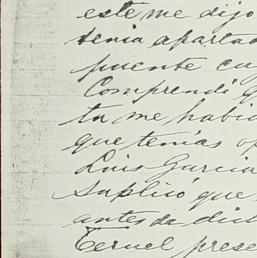 este me dijo
tenia apartad
puente cu
Comprendi q
tu me habi
que tenias op
Luis Garcia
Suplico que
antes de dich
Teruel prese